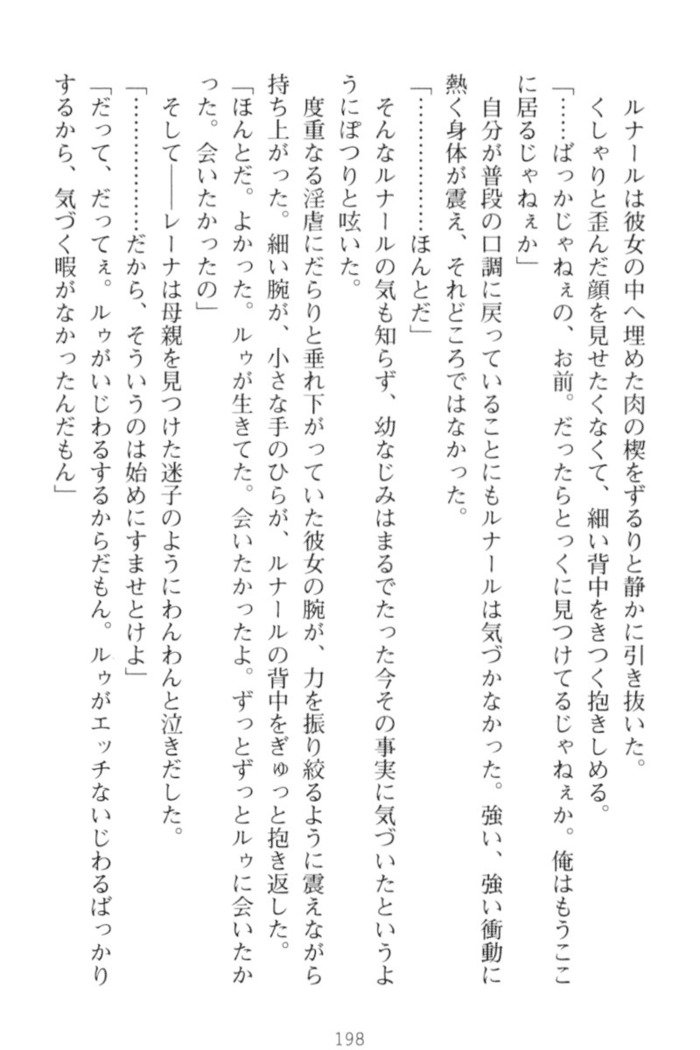 ルナールは彼女の中へ埋めた肉の楔をずるりと静かに引き抜いた。
くしゃりと歪んだ顔を見せたくなくて、細い背中をきつく抱きしめる。
「……ばっかじゃねぇの、お前。だったらとっくに見つけてるじゃねぇか。俺はもうここ
に居るじゃねぇか」
自分が普段の口調に戻っていることにもルナールは気づかなかった。強い、強い衝動に
熱く身体が震え、それどころではなかった。
「………………ほんとだ」
そんなルナールの気も知らず、幼なじみはまるでたった今その事実に気づいたというよ
うにぽつりと呟いた。
度重なる淫虐にだらりと垂れ下がっていた彼女の腕が、力を振り絞るように震えながら
持ち上がった。細い腕が、小さな手のひらが、ルナールの背中をぎゅっと抱き返した。
「ほんとだ。よかった。ルゥが生きてた。会いたかったよ。ずっとずっとルゥに会いたか
った。会いたかったの」
そして――レーナは母親を見つけた迷子のようにわんわんと泣きだした。
「………………だから、そういうのは始めにすませとけよ」
「だって、だってぇ。ルゥがいじわるするからだもん。ルゥがエッチないじわるばっかり
するから、気づく暇がなかったんだもん」
198